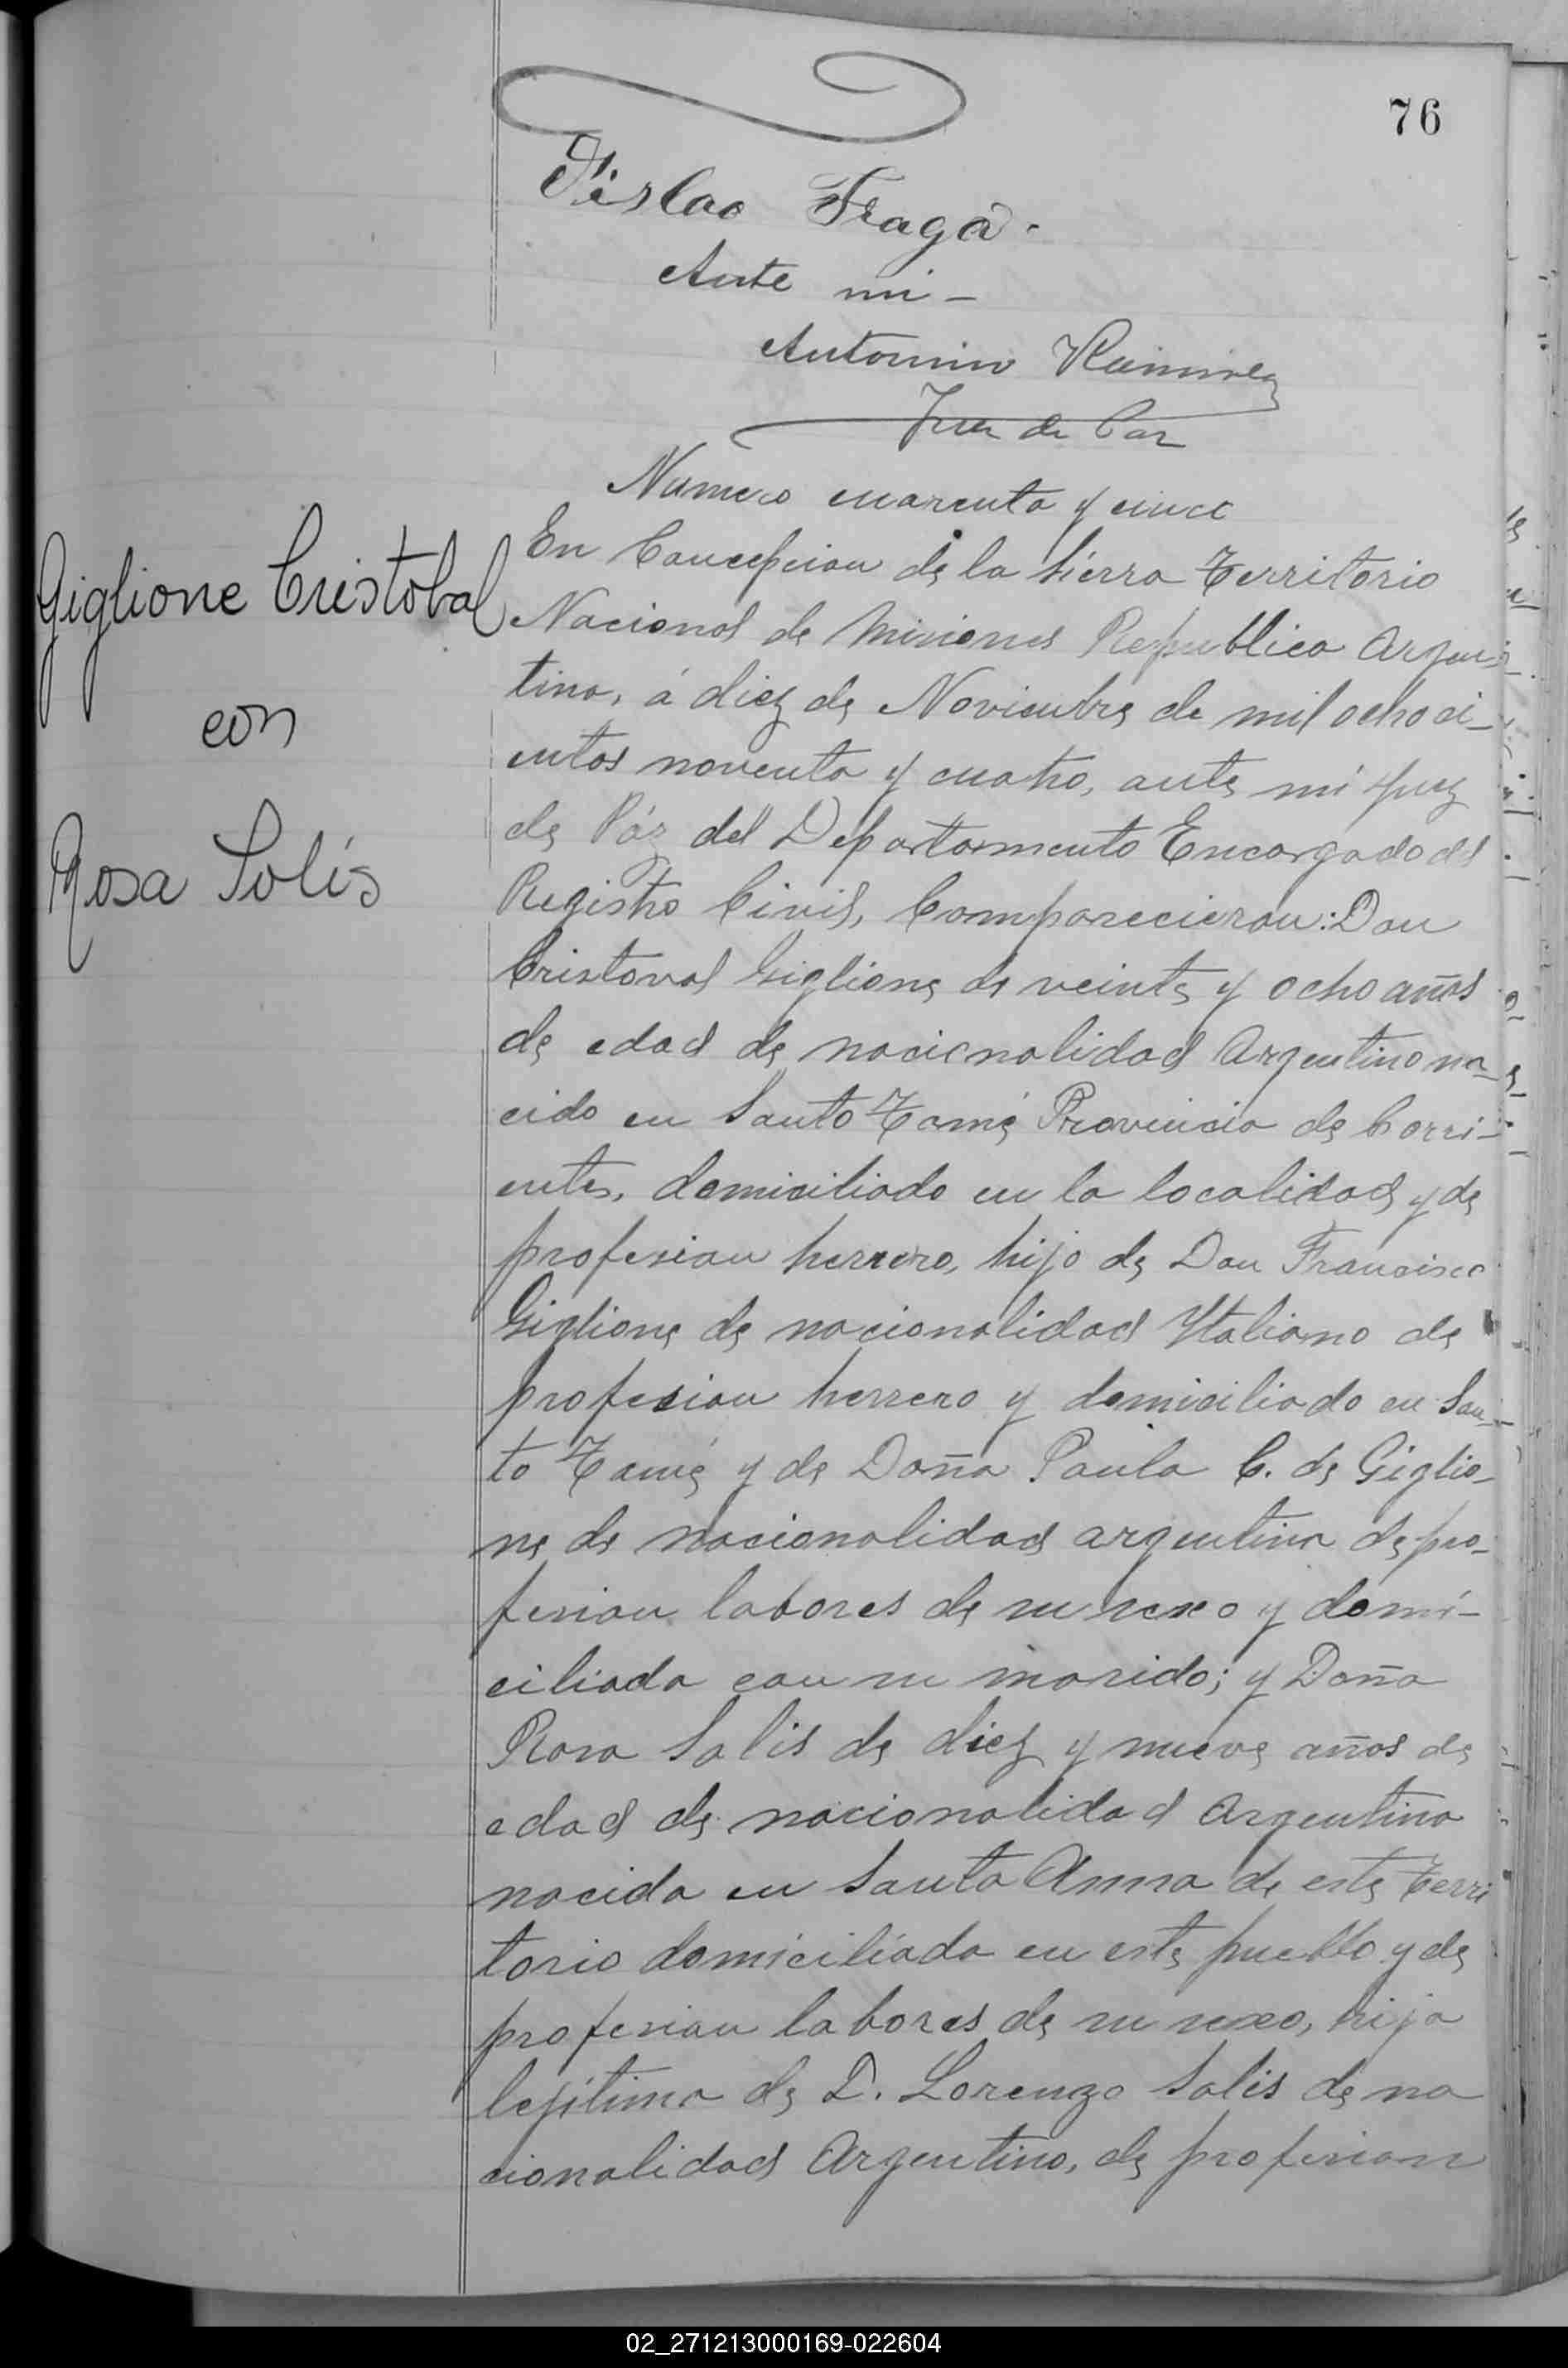 76
Fraga.
Ante mi –
Antonino Ramirez
Juez de Paz
Numero cuarenta y cinco
Giglione Cristobal
con
Rosa Solís
En Concepcion de la Sierra Territorio
Nacional de Misiones Republica Argen-
tina, á diez de Noviembre de mil ochoci-
entos noventa y cuatro, ante mi Juez
de Páz del Departamento Encargado del
Registro Civil, Comparecieron: Don
Cristoval Giglione de veinte y ocho años
de edad de nacionalidad Argentino na-
cido en Santo Tomé Provincia de Corri-
entes, domiciliado en la localidad y de
profesion herrero, hijo de Don Francisco
Giglione de nacionalidad Italiano de
profesion herrero y domiciliado en San-
to Tomé y de Doña Paula C. de Giglio-
ne de nacionalidad argentina de pro-
fesion labores de su sexo y domi-
ciliada con su marido; y Doña
Rosa Solis de diez y nueve años de
edad de nacionalidad Argentina
nacida en Santa Anna de este Terri
torio domiciliada en este pueblo y de
profesion labores de su sexo, hija
legitima de D. Lorenzo Solis de na
cionalidad Argentino, de profesion
02_271213000169-022604